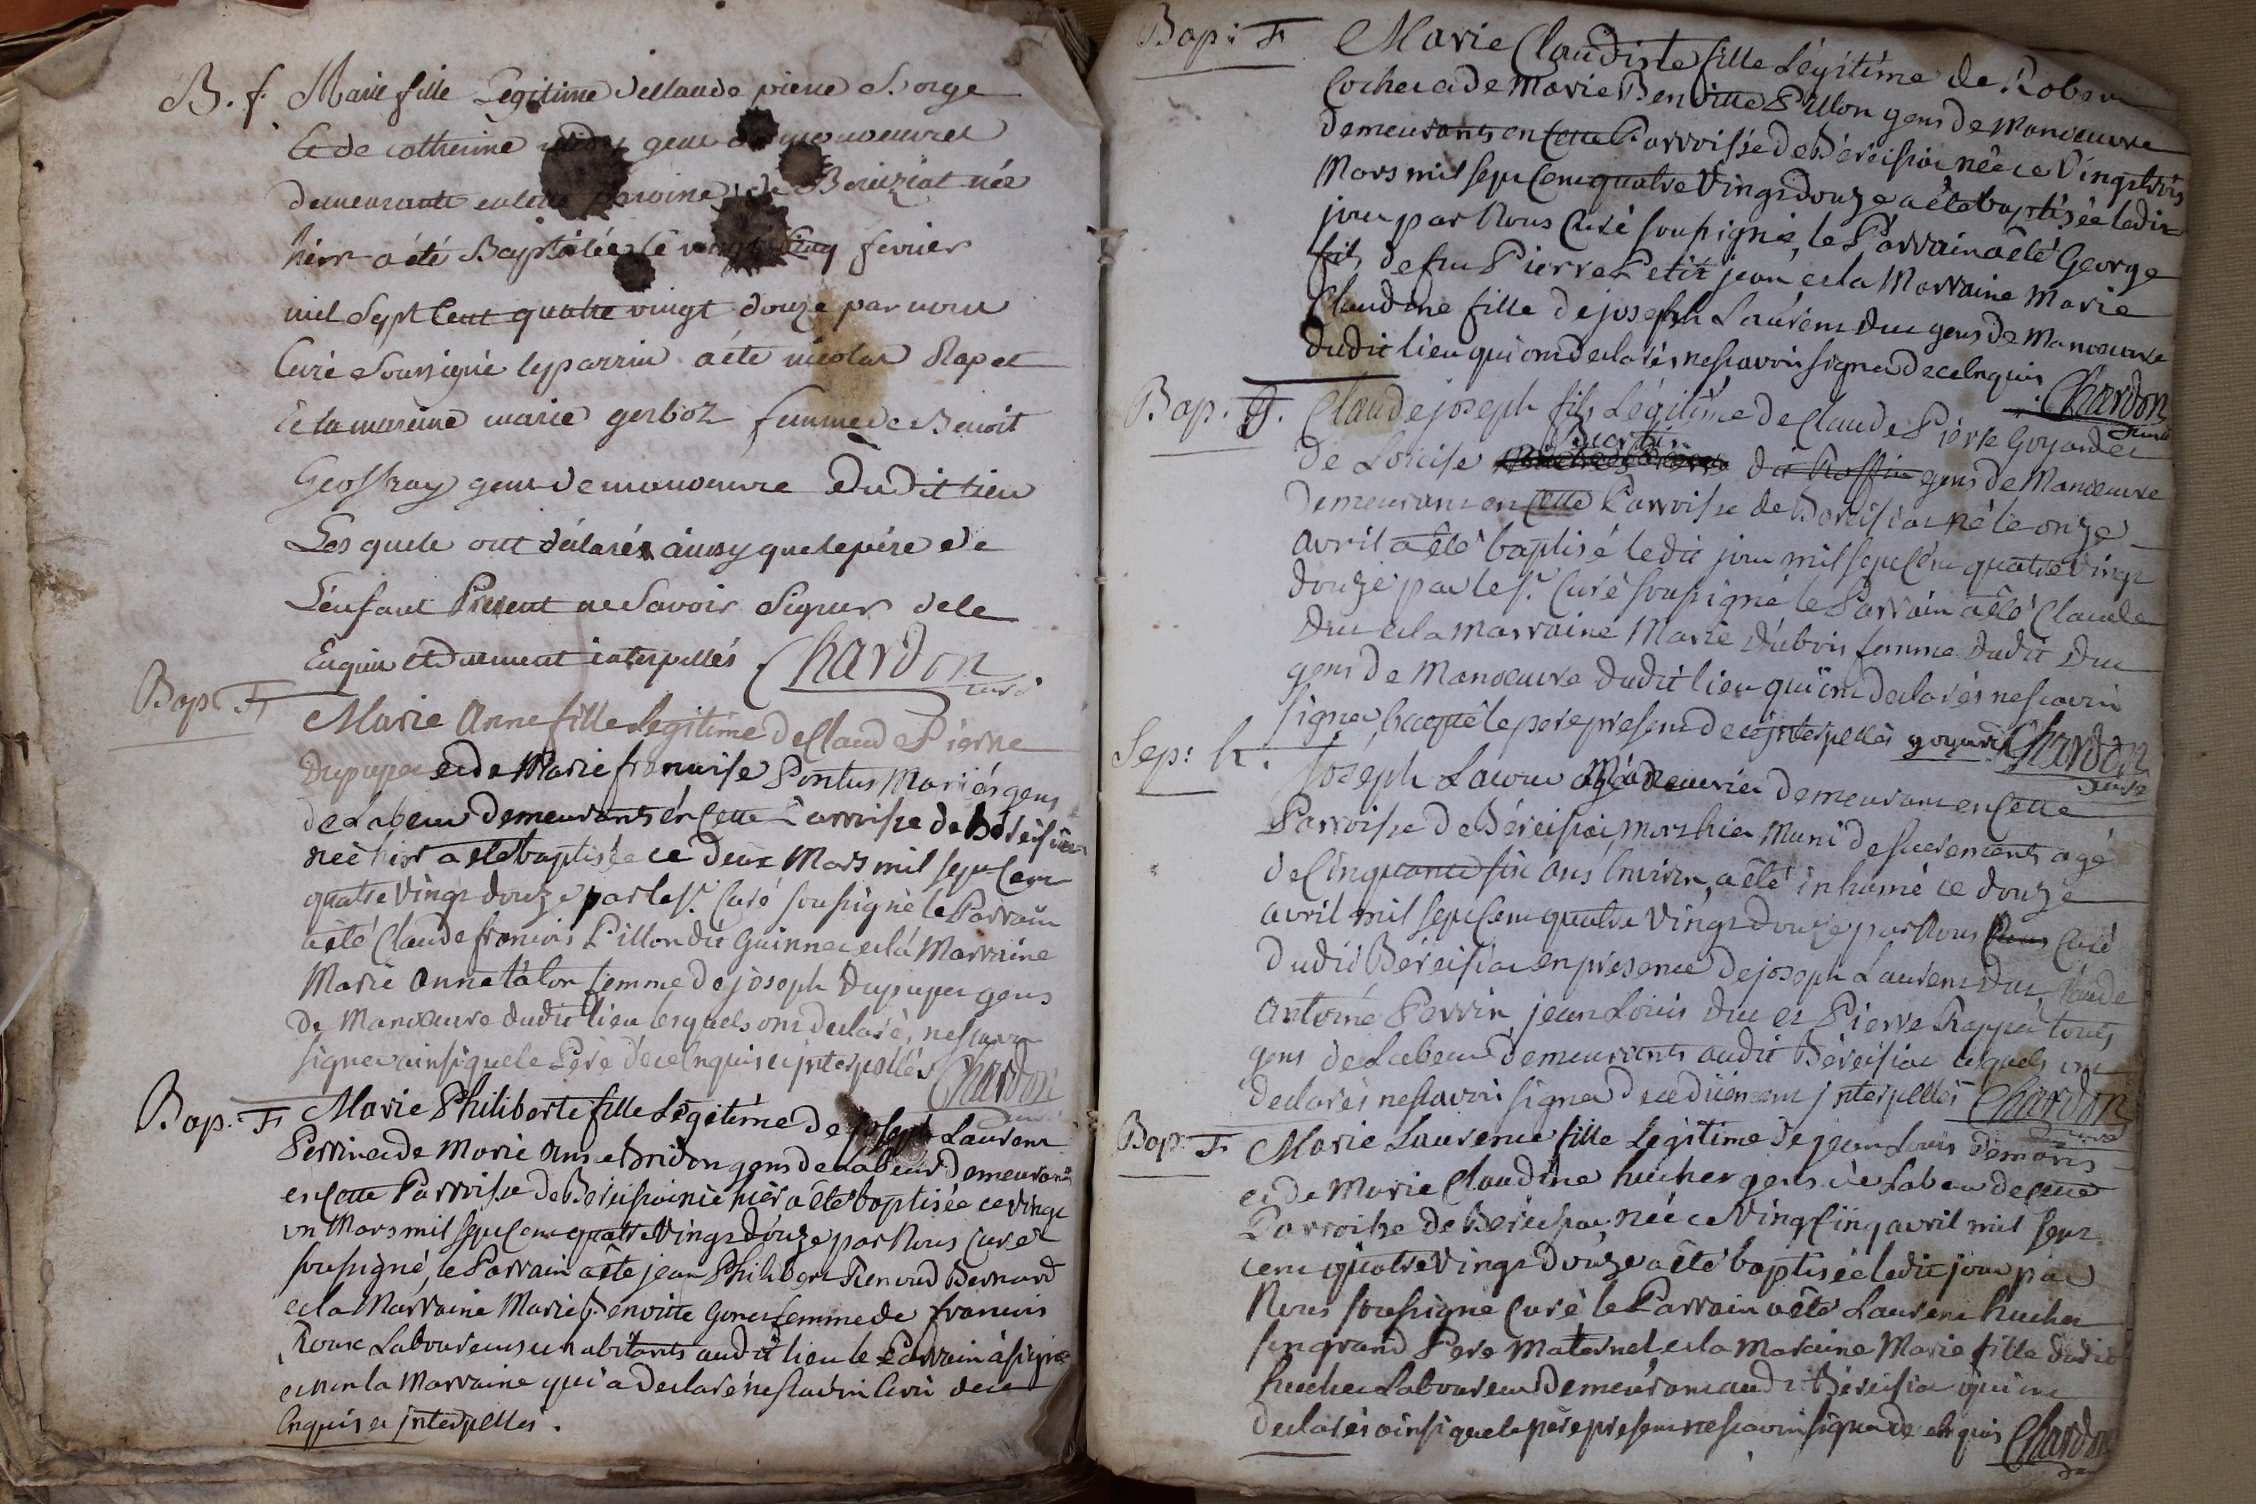 B. f. Marie fille Legitime declaude piere d. orge
Et de catherine gens de manoeuvres
demeurants en cette paroise de Béréiziat née
hier a été Baptisée le vingt cinq fevrier
mil Sept Cent quatre vingt douze par nous
Curé Soussigné leparrin a été nicolas Rapet
Et la mareine marie gerboz femme de Benoit
Geoffray gens de manoeuvre Du Dit lieu
Les quels ont déclarés ainsy que le pére de
L'enfant Present ne Savoir Signer dele
Enquis et duement interpellés Chardon
curé
Bap: F Marie Anne fille legitime de Claude Pierre
Dupupet et de Marie francoise Pontus Mariés gens
de Labeur demeurants en Cette Parroisse de Béréisiat
née hier a été baptisée ce deux Mars mil sept Cent
quatre Vingt douze par le Sr. Curé soussigné le Parrain
a été Claude francois Pillon dit Guinnet et la Marraine
Marie Anne talon femme de joseph Dupupet gens
de Manoeuvre dudit lieu lesquels ont declaré nescavoir
signer ainsi que le Pere de ce Enquis et jnterpellés Chardon
curé
Bap. F Marie Philiberte fille Légitime de joseph Laurent
Perrin et de Marie Anne Bridon gens de Labeur demeurants
en Cette Parroisse de Béréisiat née hier a été baptisée ce vingt
un Mars mil sept Cent quatre Vingt douze par Nous Curé
soussigné, le Parrain a été jean Philibert Renoud Bernard
et la Marraine Marie Benoitte Gonet femme de francois
Roux Laboureurs et habitants audit lieu le Parrain à signé
et non la Marraine qui a declaré nescavoir de ce
Enquis et jnterpellés.
Bap: F Marie Claudine fille Légitime de Robert
Cochet et de Marie Benoitte Pillon gens de Manoeuvre
demeurants en Cette Parroisse de Béréisiat née ce Vingt trois
Mars mil sept Cent quatre Vingt douze a été baptisée ledit
jour par Nous Curé soussigné, le Parrain a été George
fils de feu Pierre Petit jean et la Marraine Marie
Claudine fille de joseph Laurent Duc gens de Manoeuvre
dudit lieu qui ont declarés nescavoir signer de ce Enquis Chardon
curé
Bap. G. Claude joseph fils Légitime de Claude Pierre Goyard et
Buartin
de Louise dit Roffin gens de Manoeuvre
demeurant en Cette Parroisse de Béréisiat né le onze
Avril a été baptisé ledit jour mil sept Cent quatre Vingt
douze par le Sr. Curé soussigné le Parrain a été Claude
Duc et la Marraine Marie dubois femme dudit Duc
gens de Manoeuvre dudit lieu qui ont declarés nescavoir
signer, le pere present de ce jnterpellés goyard Chardon
curé
Sep: h. Joseph Manoeuvrier demeurant en Cette
Parroisse de Béréisiat, mort hier Muni des sacrements agé
de Cinquante six ans Environ, a été inhumé ce douze
avril mil sept Cent quatre Vingt douze par Nous Curé
dudit Béréisiat en presence de joseph Laurent Duc, Claude
Antoine Perrin, jean Louis Duc et Pierre Rappet touts
gens de Labeur demeurants audit Béréisiat lesquels ont
declarés nescavoir signer de ce duement jnterpellés Chardon
curé
Bap. F. Marie Laurence fille Legitime de jean Louis Demaris
et de Marie Claudine huchet gens de Labeur de cette
Parroisse de Béréisiat Née ce Vingt Cinq avril mil sept
cent quatre Vingt douze a été baptisée ledit jour par
Nous soussigné Curé le Parrain a été Laurent huchet
son grand Pere Maternel et la Maraine Marie fille dudit
huchet Laboureur demeurant audit Béréisiat qui ont
declarés ainsi que le pére present nescavoir signer de Enquis Chardon
curé